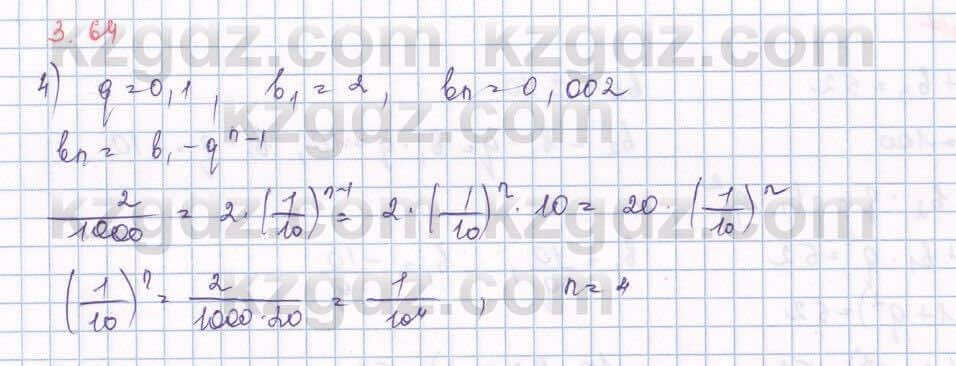 3.64
4) q = 0,1, b₁ = 2, bn = 0,002
bn = b₁ - qⁿ⁻¹
2/1000 = 2·(1/10)ⁿ⁻¹ = 2·(1/10)ⁿ·10 = 20·(1/10)ⁿ
(1/10)ⁿ = 2/(1000·20) = 1/10⁴, n = 4
kzgdz.com kzgdz.com
kzgdz.com
kzgdz.com kzgdz.com
kzgdz.com